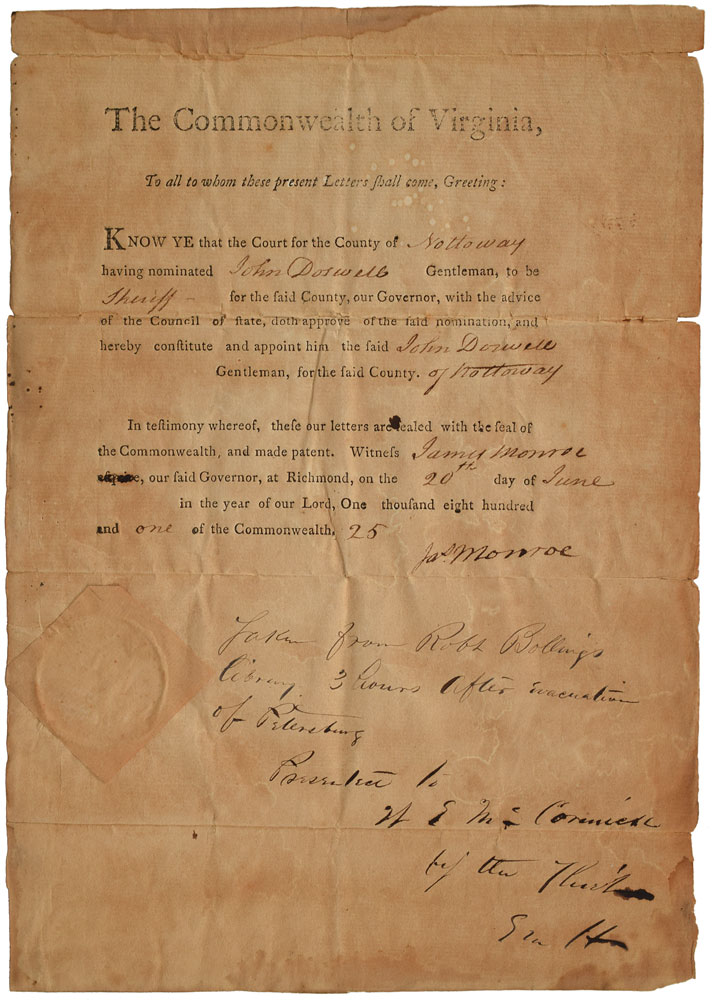 The Commonwealth of Virginia,
To all to whom these present Letters ſhall come, Greeting:
KNOW YE that the Court for the County of Nottoway
having nominated John Dorwell Gentleman, to be
Sheriff – for the ſaid County, our Governor, with the advice
of the Council of ſtate, doth approve of the ſaid nomination, and
hereby conſtitute and appoint him the ſaid John Dorwell
Gentleman, for the ſaid County. of Nottoway
In teſtimony whereof, theſe our letters are ſealed with the ſeal of
the Commonwealth, and made patent. Witneſs James Monroe
eſquire, our ſaid Governor, at Richmond, on the 20th day of June
in the year of our Lord, One thouſand eight hundred
and one of the Commonwealth, 25
Jas. Monroe
Taken from Robt Bollings
library 3 hours After evacuation
of Petersburg
Presented to
W E Mc Cormick
by the